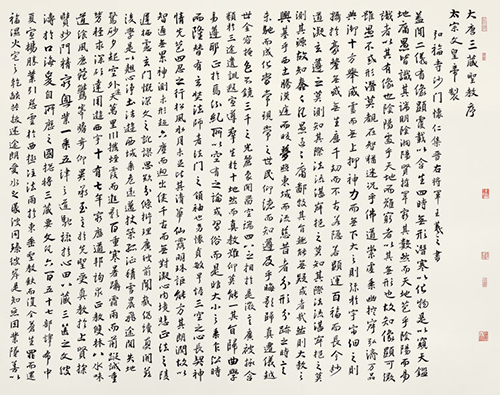 大唐三藏聖教序
太宗文皇帝製
弘福寺沙門懷仁集晉右將軍王羲之書
蓋聞二儀有像顯覆載以含生四時無形潛寒暑以化物是以窺天鑑
地庸愚皆識其端明陰洞陽賢哲罕窮其數然而天地苞乎陰陽而易
識者以其有像也陰陽處乎天地而難窮者以其無形也故知像顯可徵
雖愚不惑形潛莫覩在智猶迷況乎佛道崇虛乘幽控寂弘濟萬品
典御十方舉威靈而無上抑神力而無下大之則彌於宇宙細之則
攝於豪釐無滅無生歷千劫而不古若隱若顯運百福而長今妙
道凝玄遵之莫知其際法流湛寂挹之莫
測其源故知蠢蠢凡愚區區庸鄙投其旨趣能無疑惑者哉然則大教之
興基乎西土騰漢庭而皎夢照東域而流慈昔者分形分跡之時言
未馳而成化當常現常之世民仰德而知遵及乎晦影歸真遷儀越
世金容掩色不鏡三千之光麗象開圖空端四八之相於是微言廣被拯含
類於三途遺訓遐宣導群生於十地然而真教難仰莫能一其旨歸曲學
易遵邪正於焉紛糺所以空有之論或習俗而是非大小之乘乍沿時
而隆替有玄奘法師者法門之領袖也幼懷貞敏早悟三空之心長契神
情先苞四忍之行松風水月未足比其清華仙露明珠詎能方其朗潤故以
智通無累神測未形超六塵而迥出隻千古而無對凝心內境悲正法之陵
遲栖慮玄門慨深文之訛謬思欲分條析理廣彼前聞截偽續真開茲
後學是以翹心淨土法遊西域乘危遠邁杖策孤征積雪晨飛途間失地
驚砂夕起空外迷天萬里山川撥煙霞而進影百重寒暑躡霜雨而前蹤誠重
勞輕求深願達周遊西宇十有七年窮歷道邦詢求正教雙林八水味
道飡風鹿苑鷲峰瞻奇仰異承至言於先聖受真教於上賢探
賾妙門精窮奧業一乘五律之道馳驟於心田八藏三篋之文波
濤於口海爰自所歷之國總將三藏要文凡六百五十七部譯布中
夏宣揚勝業引慈雲於西極注法雨於東垂聖教缺而復全蒼生罪而還
福濕火宅之乾焰共拔迷途朗愛水之昏波同臻彼岸是知惡因業墜善以